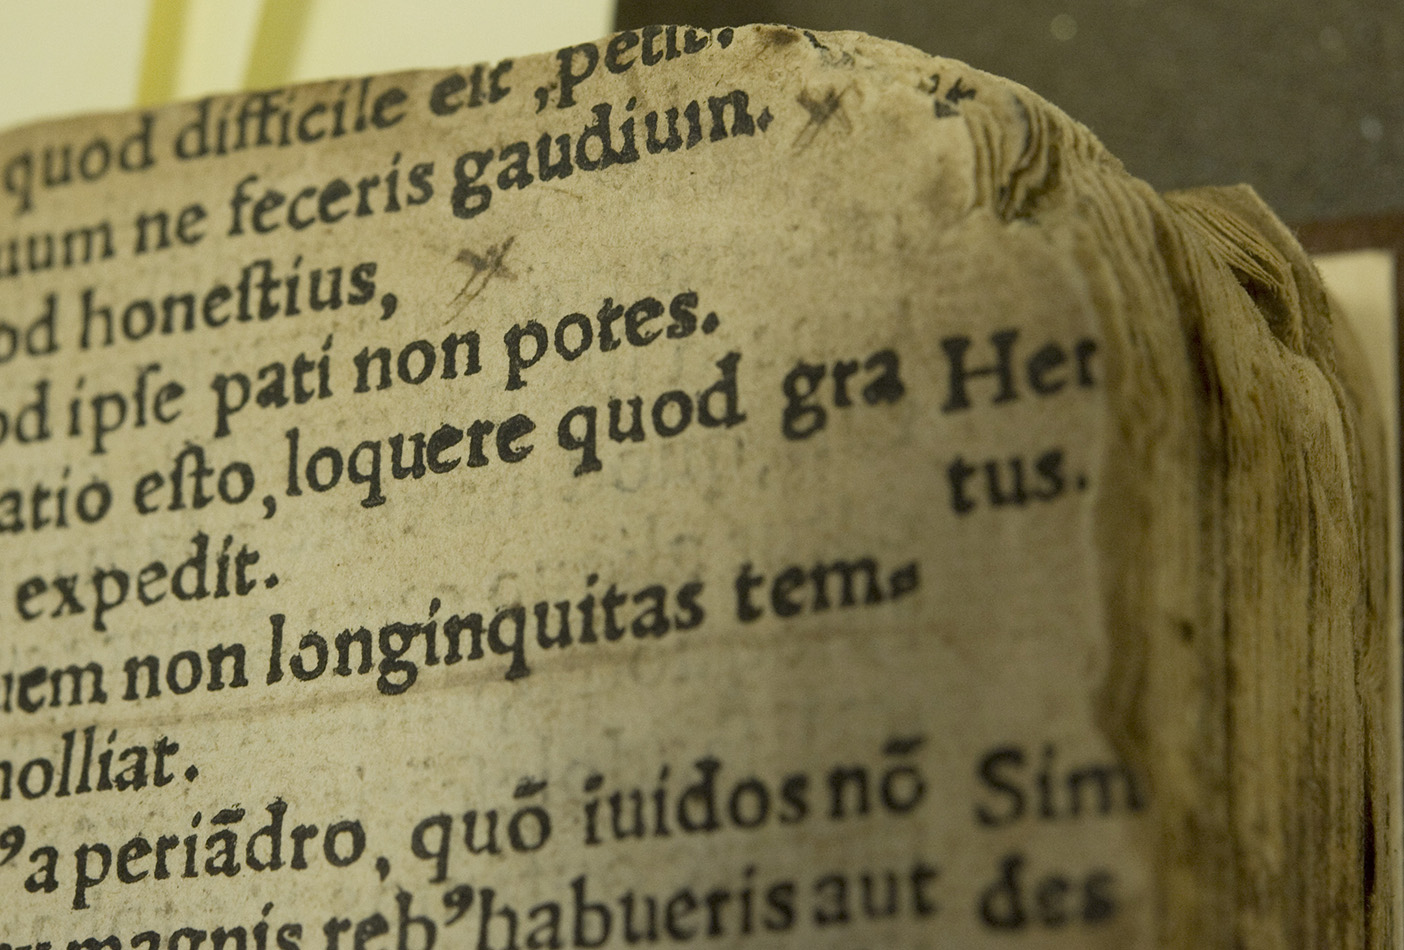 quod difficile eſt, petit.
uum ne feceris gaudium.
od honeſtius,
od ipſe pati non potes.
atio eſto, loquere quod gra Her
expedit. tus.
uem non longinquitas tem⸗
olliat.
ꝰ a periãdro, quõ iuidos nõ Sim
magnis rebꝰ habueris aut des